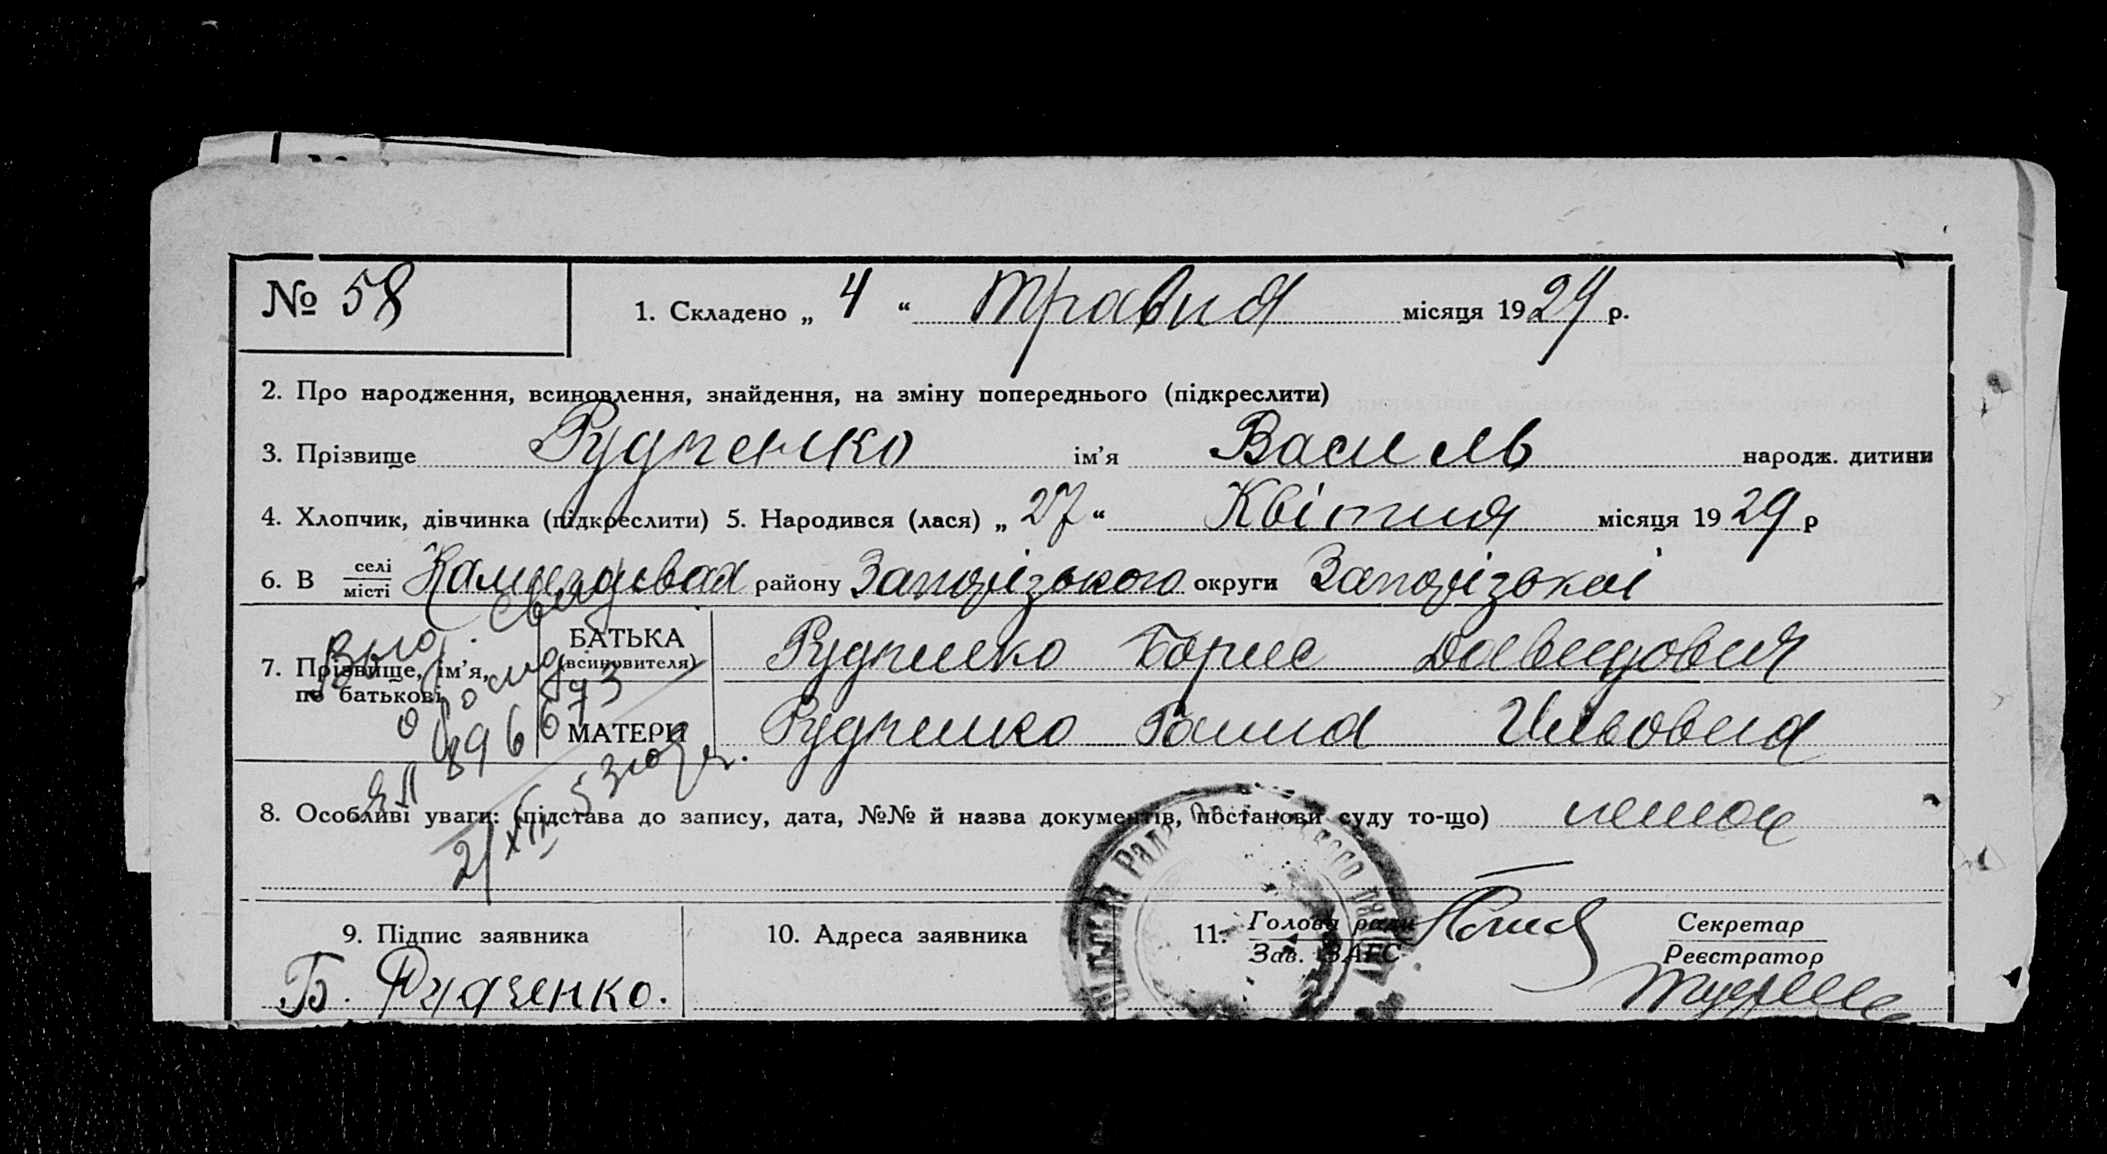 № 58 1. Складено „ 4 “ травня місяця 1929 р.
2. Про народження, всиновлення, знайдення, на зміну попереднього (підкреслити)
3. Прізвище Рудченко ім’я Василь народж. дитини
4. Хлопчик, дівчинка (підкреслити) 5. Народився (лася) „ 27 “ Квітня місяця 1929 р
6. В селі місті районі району Запорізького округи Запорізької
7. Прізвище, ім’я, по батькові
БАТЬКА (всиновителя) Рудченко Борис Давидович
МАТЕРИ Рудченко Ганна
8. Особливі уваги: (підстава до запису, дата, №№ й назва документів, постанови суду то-що) немає
Выд. свид
о рожд
ЯЛ 896673
21/XII 53 года.
9. Підпис заявника 10. Адреса заявника 11. Голова ради Зав. ЗАГС Секретар Реєстратор
Б. Рудченко.